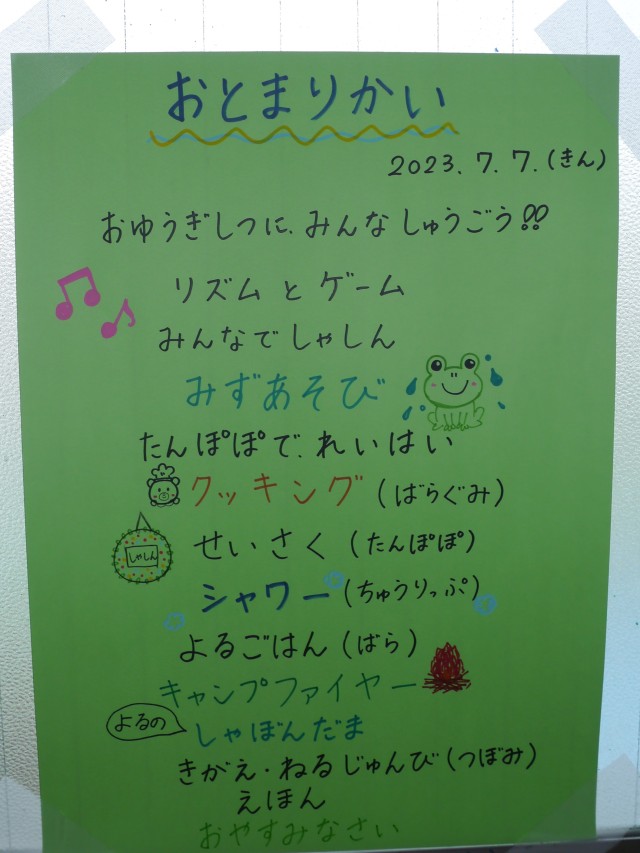 おとまりかい
2023.7.7.(きん)
おゆうぎしつに、みんなしゅうごう!!
リズムとゲーム
みんなでしゃしん
みずあそび
たんぽぽで、れいはい
クッキング(ばらぐみ)
しゃしん
せいさく(たんぽぽ)
シャワー(ちゅうりっぷ)
よるごはん(ばら)
キャンプファイヤー
よるの しゃぼんだま
きがえ・ねるじゅんび(つぼみ)
えほん
おやすみなさい